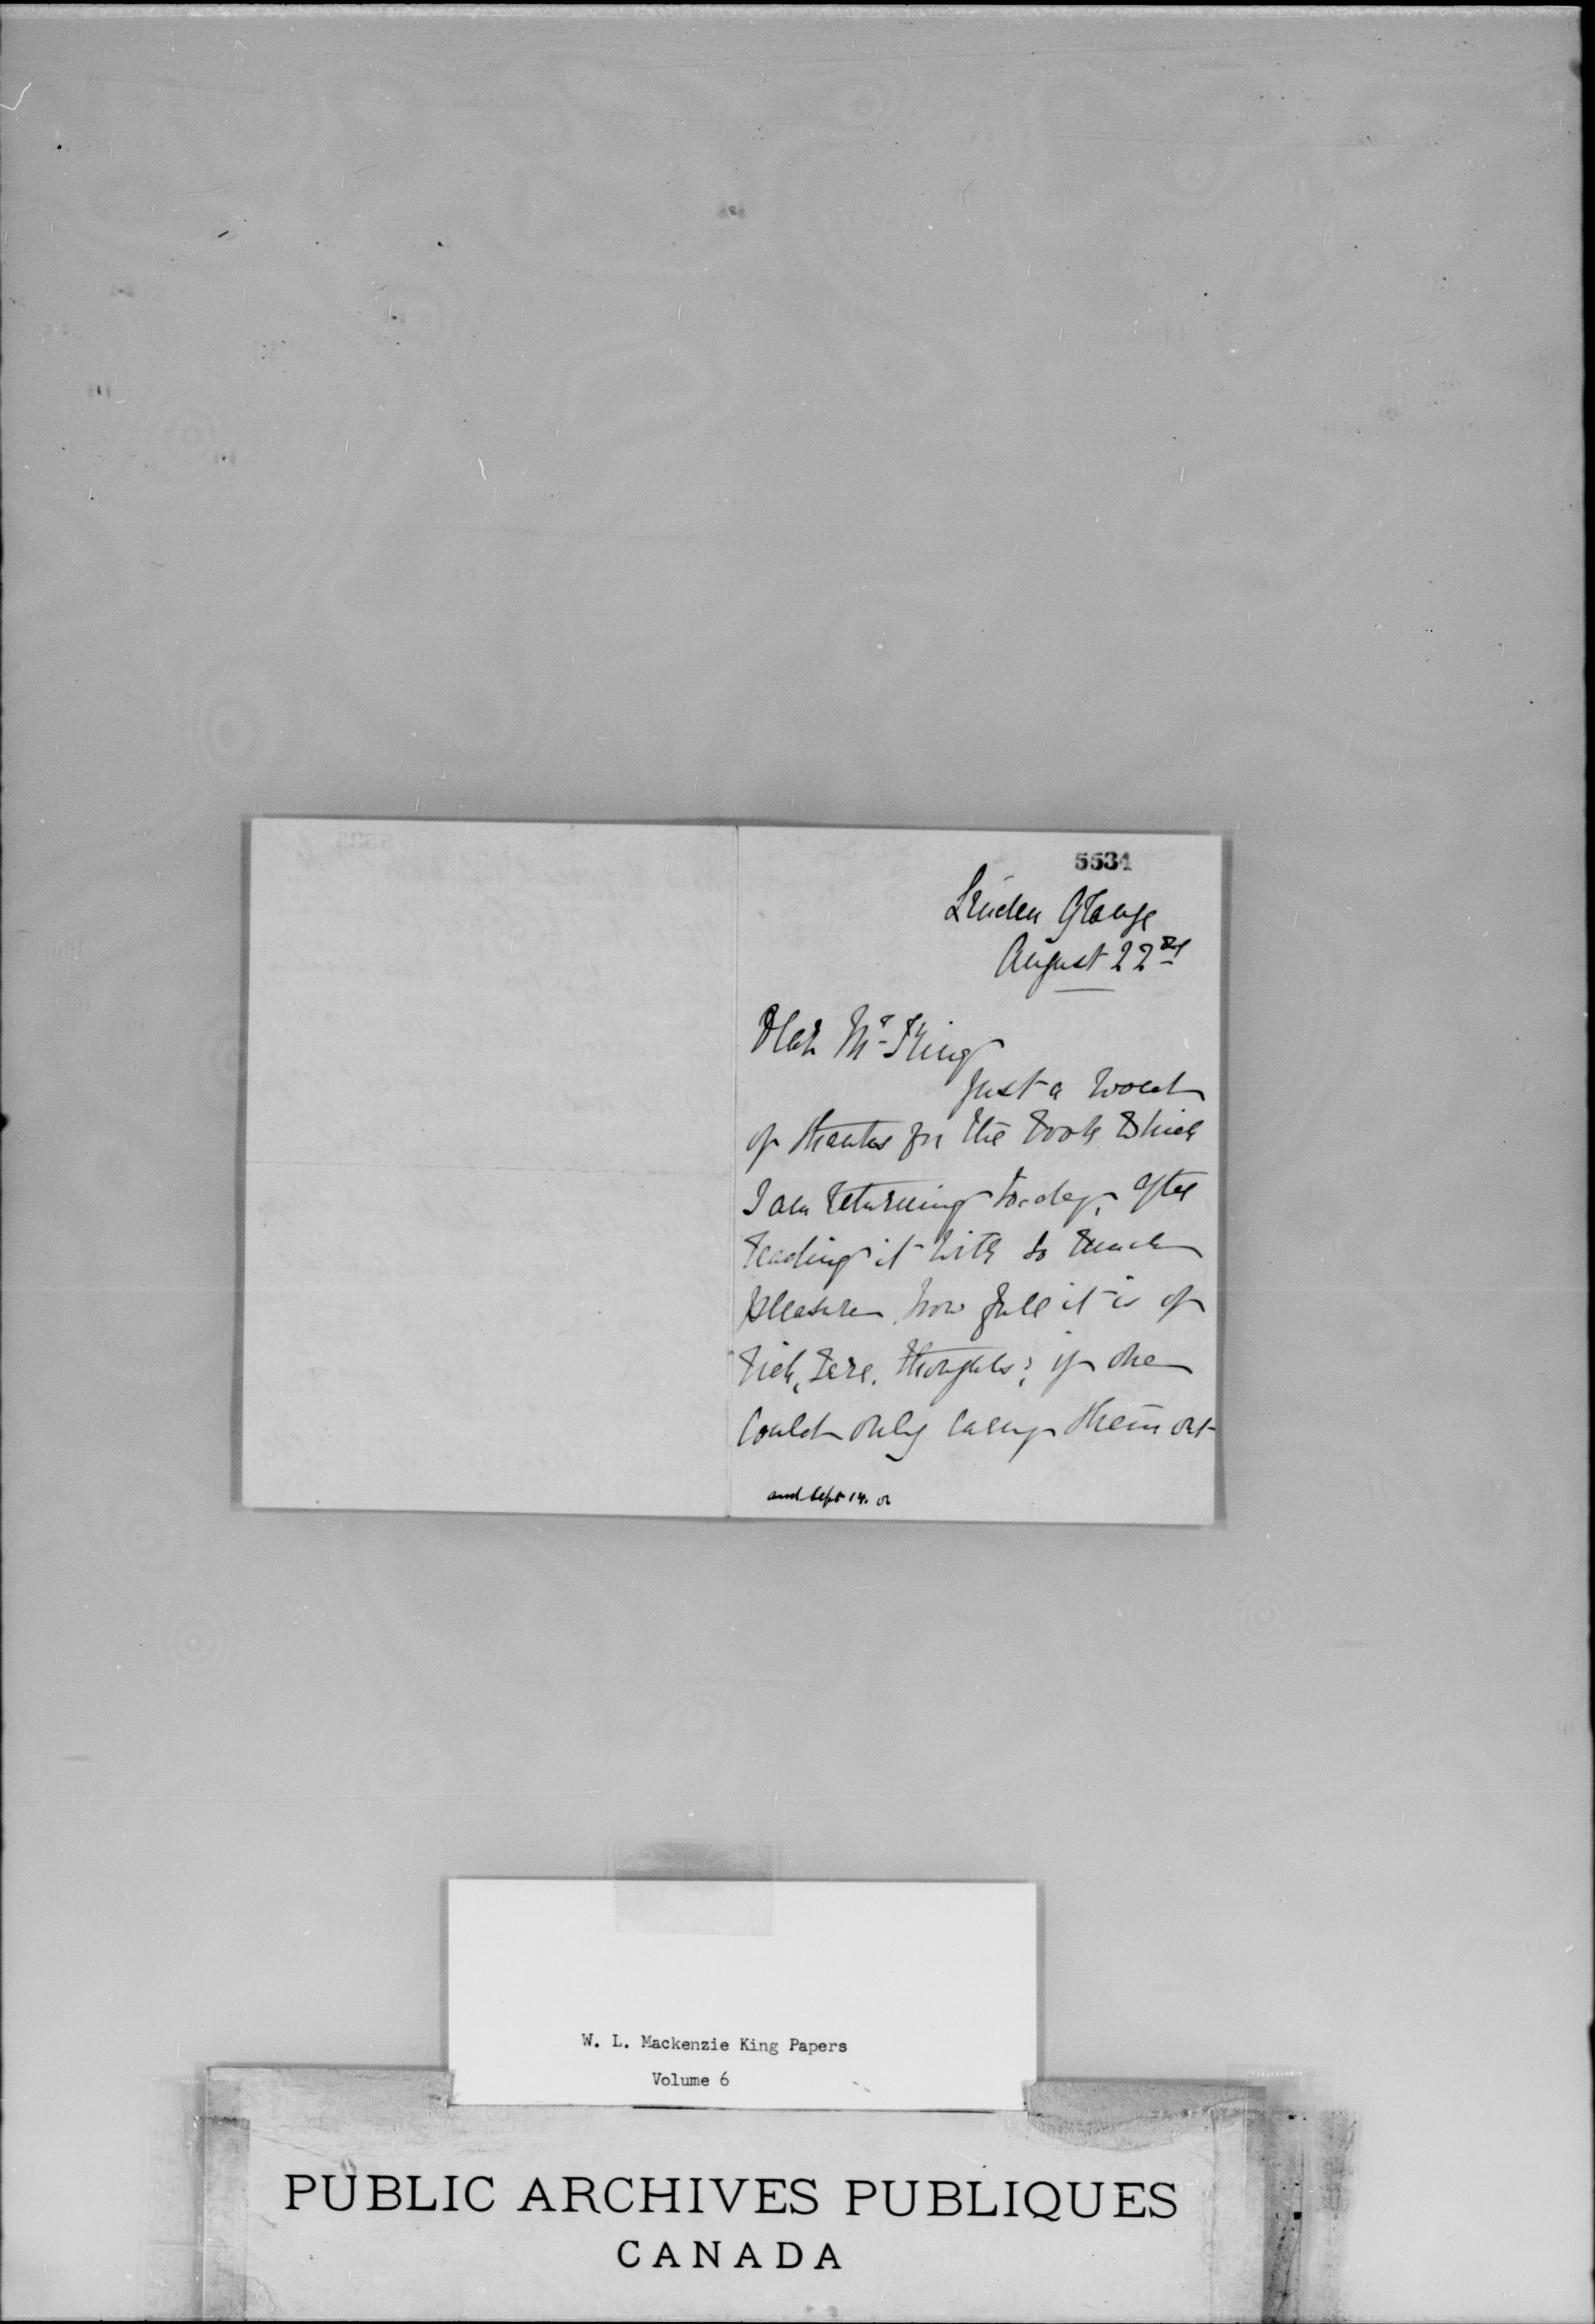 5534
Linden Grange
August 22nd
Dear Mr King
Just a word
of thanks for the book which
I am returning to-day, after
reading it with so much
pleasure, how full it is of
rich, rare, thoughts; if one
could only carry them out
and Sept 14. 02
W. L. Mackenzie King Papers
Volume 6
PUBLIC ARCHIVES PUBLIQUES
CANADA